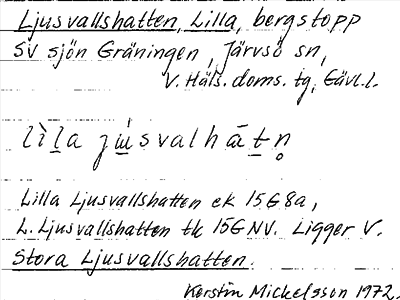 Ljusvallshatten, Lilla, bergstopp
SV sjön Gräningen, Järvsö sn,
V. Häls. doms. tg, Gävl.l.
lìl̠a ju̠̍svalhāt̠n̥
Lilla Ljusvallshatten ek 15G8a,
L. Ljusvallshatten tk 15GNV. Ligger V.
Stora Ljusvallshatten.
Kerstin Mickelsson 1972.